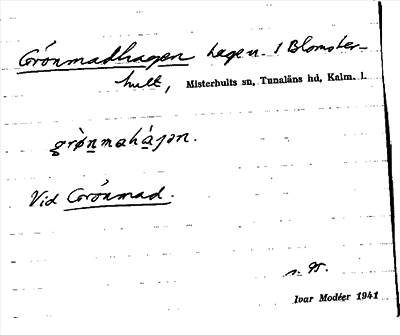 Grönmadhagen hagen. 1 Blomster-
hult, Misterhults sn, Tunaläns hd, Kalm. l.
grò̀nmahájən.
Vid Grönmad.
s. 95.
Ivar Modéer 1941